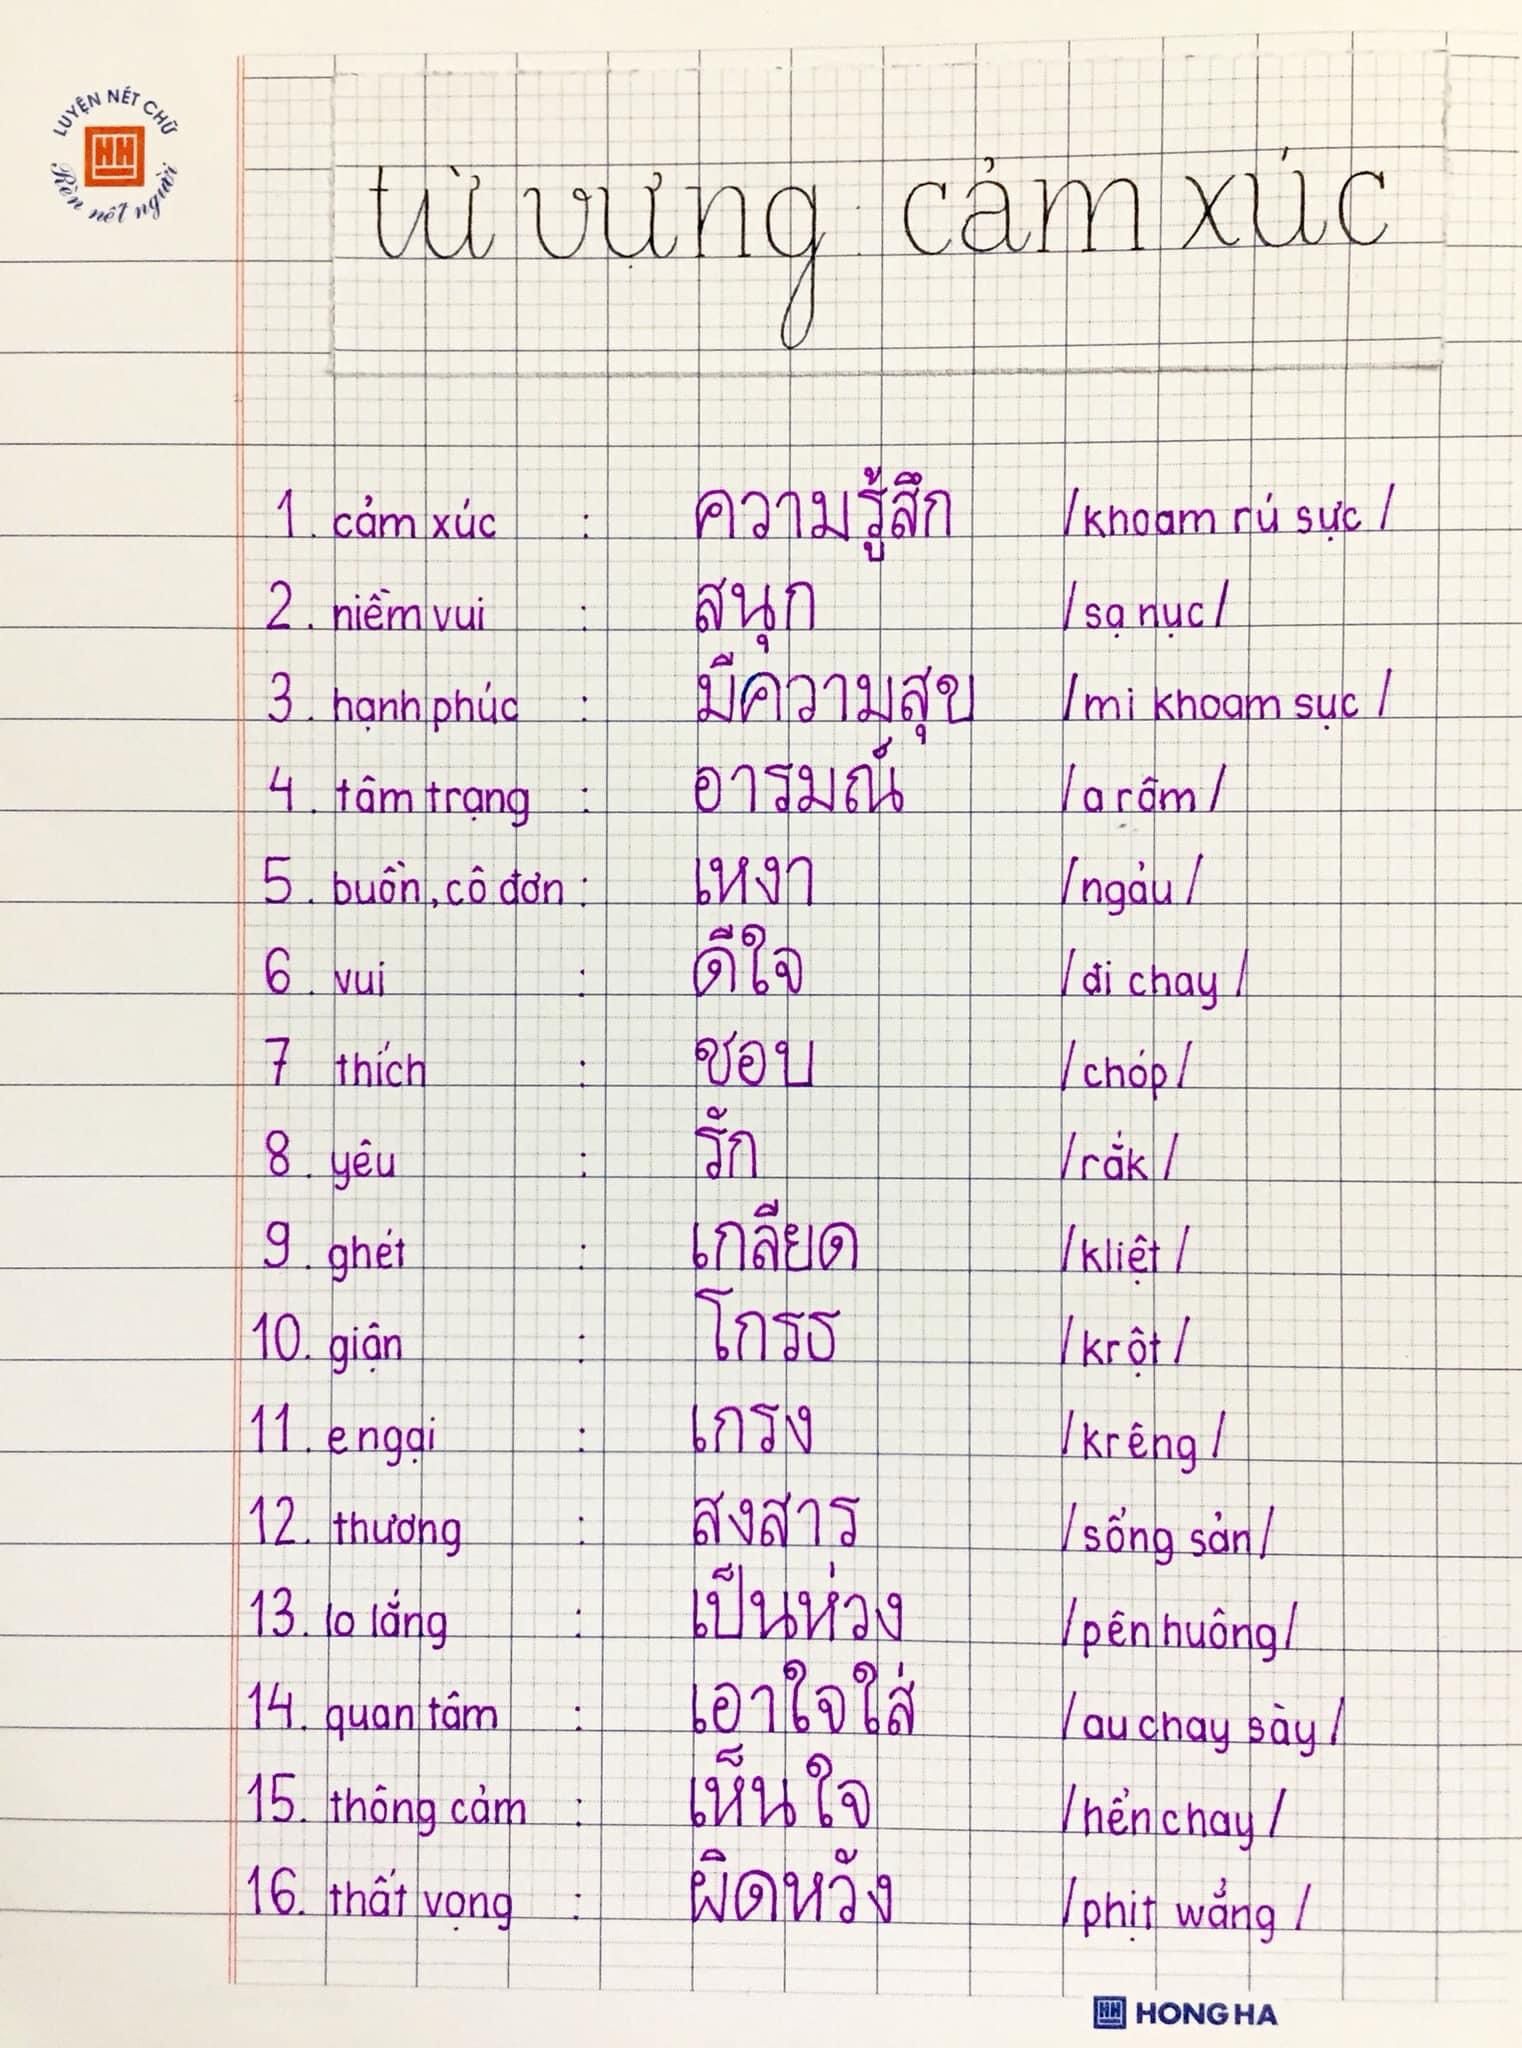 LUYỆN NÉT CHỮ
HH
Rèn nét người
từ vựng cảm xúc
1. cảm xúc : ความรู้สึก /khoam rú sực/
2. niềm vui : สนุก /sạ nục/
3. hạnh phúc : มีความสุข /mi khoam sục/
4. tâm trạng : อารมณ์ /a rôm/
5. buồn, cô đơn : เหงา /ngảu/
6. vui : ดีใจ /đi chay/
7 thích : ชอบ /chóp/
8. yêu : รัก /rắk/
9. ghét : เกลียด /kliệt/
10. giận : โกรธ /krột/
11. e ngại : เกรง /krêng/
12. thương : สงสาร /sổng sản/
13. lo lắng : เป็นห่วง /pên huông/
14. quan tâm : เอาใจใส่ /au chay sày/
15. thông cảm : เห็นใจ /hển chay/
16. thất vọng : ผิดหวัง /phịt wẳng/
HH HONG HA